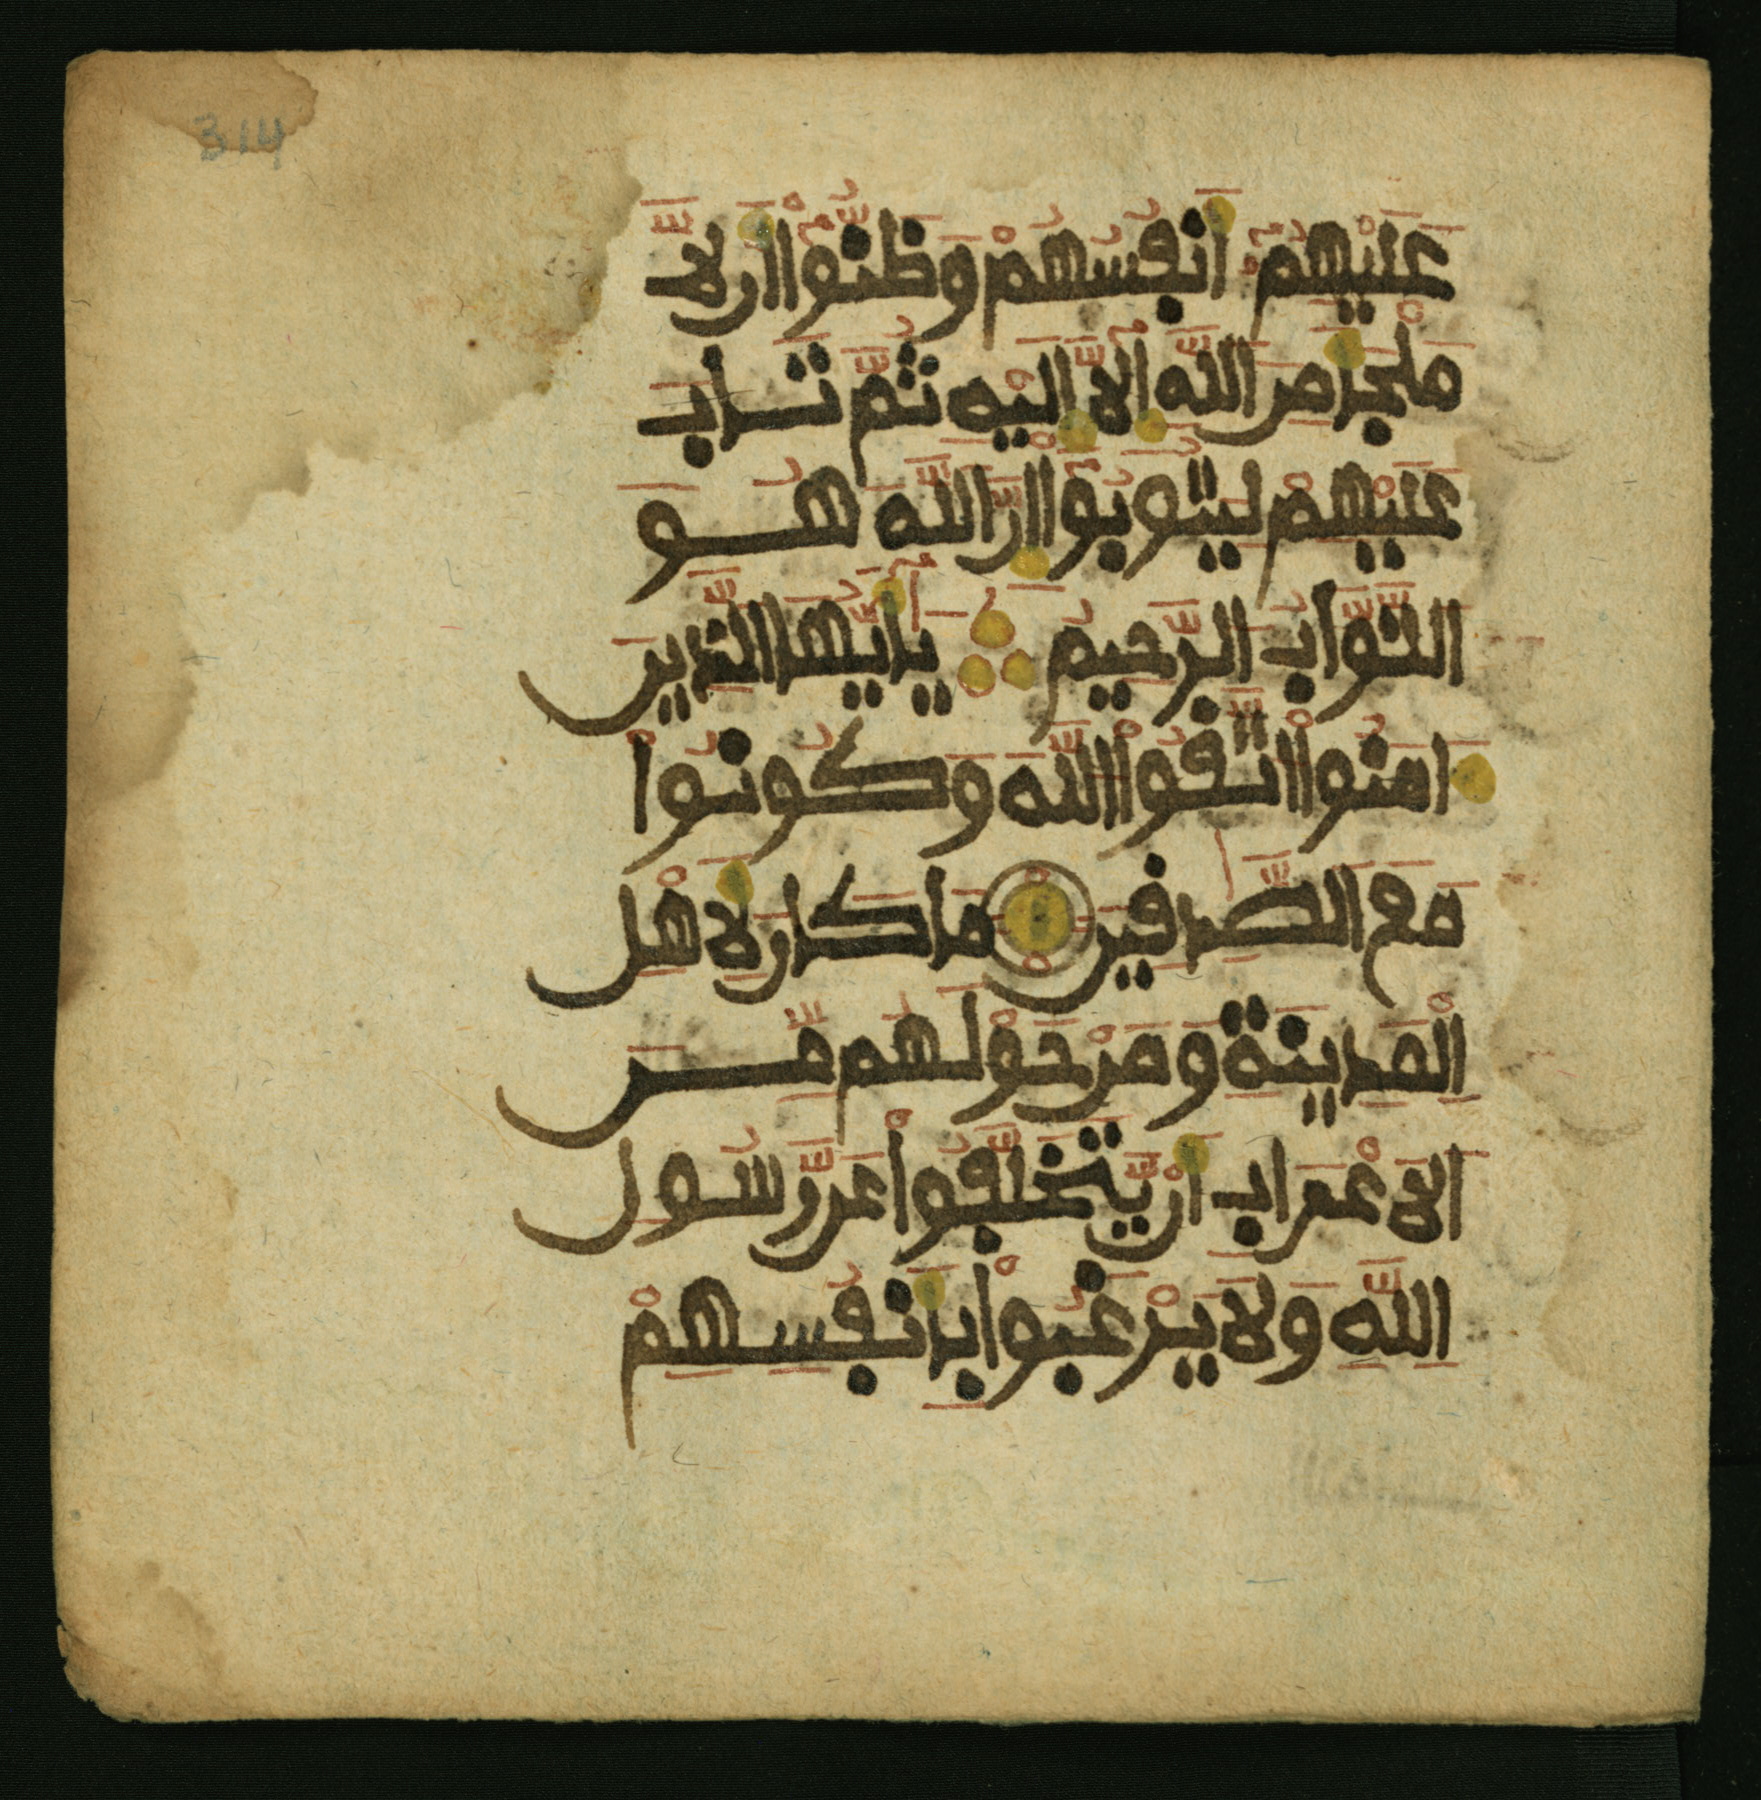 314
عَلَيْهِمُۥ أَنفُسُهُمْ وَظَنُّوٓا أَن لَّا
مَلْجَأَ مِنَ اللَّهِ إِلَّآ إِلَيْهِ ثُمَّ تَابَ
عَلَيْهِمْ لِيَتُوبُوٓا إِنَّ اللَّهَ هُوَ
التَّوَّابُ الرَّحِيمُ يَٰأَيُّهَا الَّذِينَ
ءَامَنُوا اتَّقُوا اللَّهَ وَكُونُوا
مَعَ الصَّٰدِقِينَ مَا كَانَ لِأَهْلِ
الْمَدِينَةِ وَمَنْ حَوْلَهُم مِّنَ
الَاعْرَابِ أَنْ يَّتَخَلَّفُوا عَن رَّسُولِ
اللَّهِ وَلَا يَرْغَبُوا بِأَنفُسِهِمْ